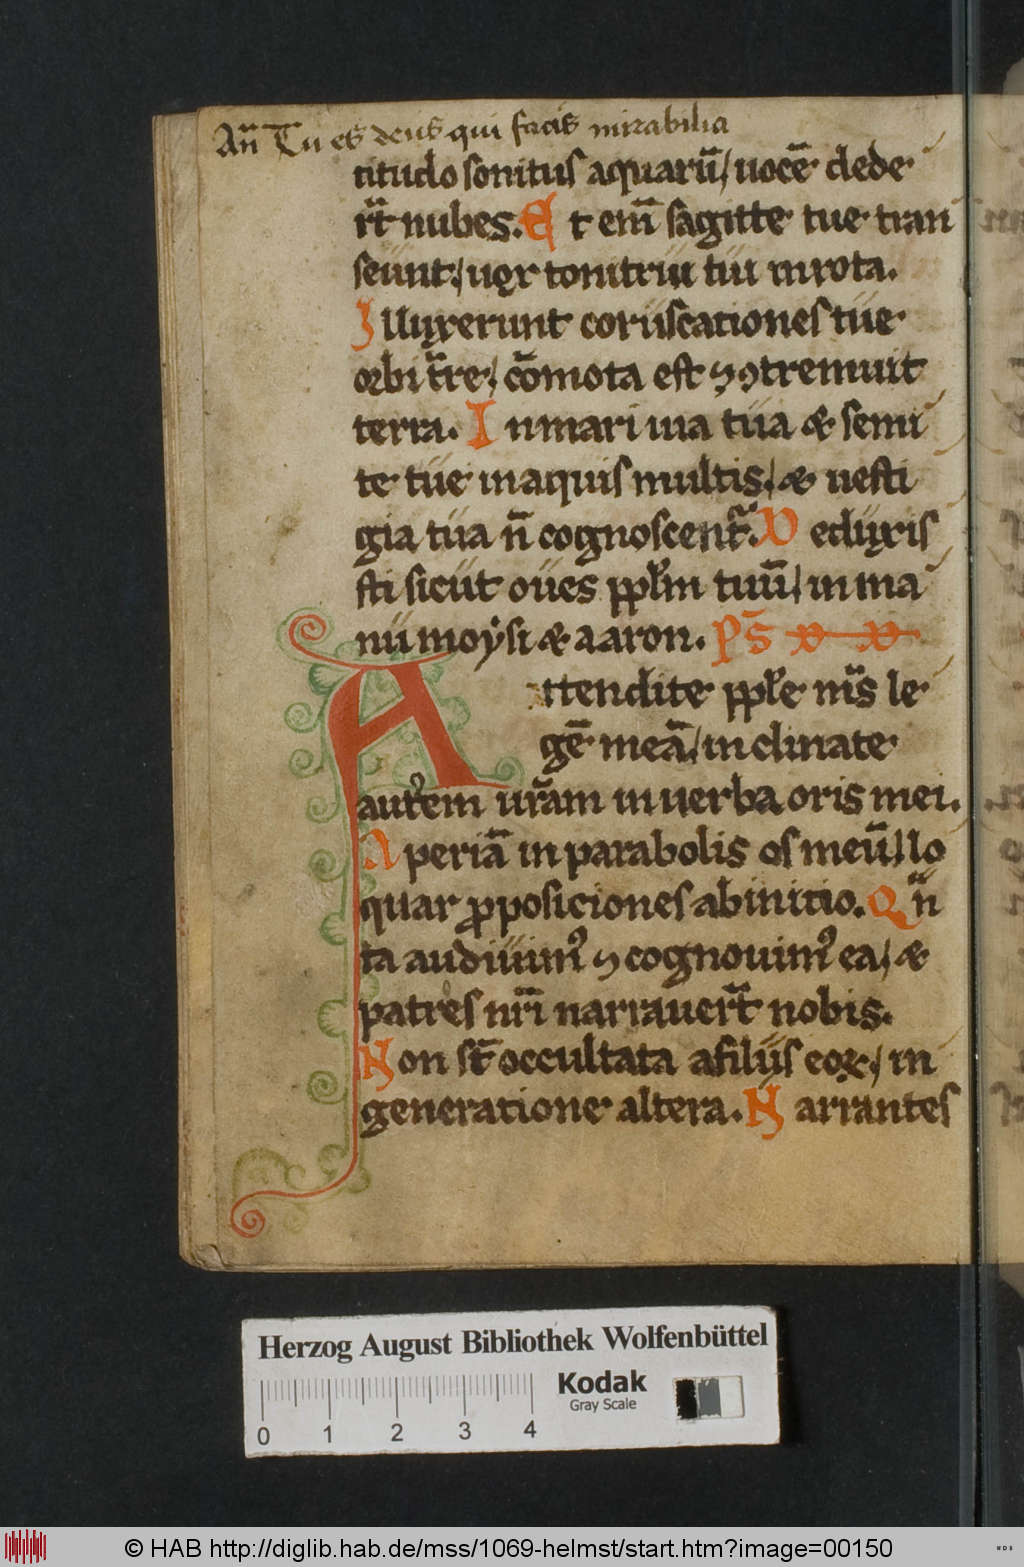 Añ Tu es deus qui facis mirabilia
titudo sonitus aquarū / uocē dede
rt̄ nubes. Et em̄ sagitte tue tran
seunt / uox tonitrui tui in rota.
Illuxerunt coruscationes tue
orbi t̄re / cōmota est ⁊ ꝯtremuit
terra. In mari uia tua & semi
te tue in aquis multis / & uesti
gia tua ñ cognoscent̄. Deduxi
sti sicut oues ppl̄m tuū / in ma
nu moysi & aaron. Ps̄
Attendite ppl̄e m̄s le
gē meā / inclinate
aurem ur̄am in uerba oris mei.
Aperiā in parabolis os meū / lo
quar ꝓposiciones ab initio. Qñ
ta audiuimꝰ ⁊ cognouimꝰ ea / &
patres nr̄i narrauert̄ nobis.
Non st̄ occultata a filijs eoꝝ / in
generatione altera. Narrantes
Herzog August Bibliothek Wolfenbüttel
Kodak
Gray Scale
0 1 2 3 4
© HAB http://diglib.hab.de/mss/1069-helmst/start.htm?image=00150